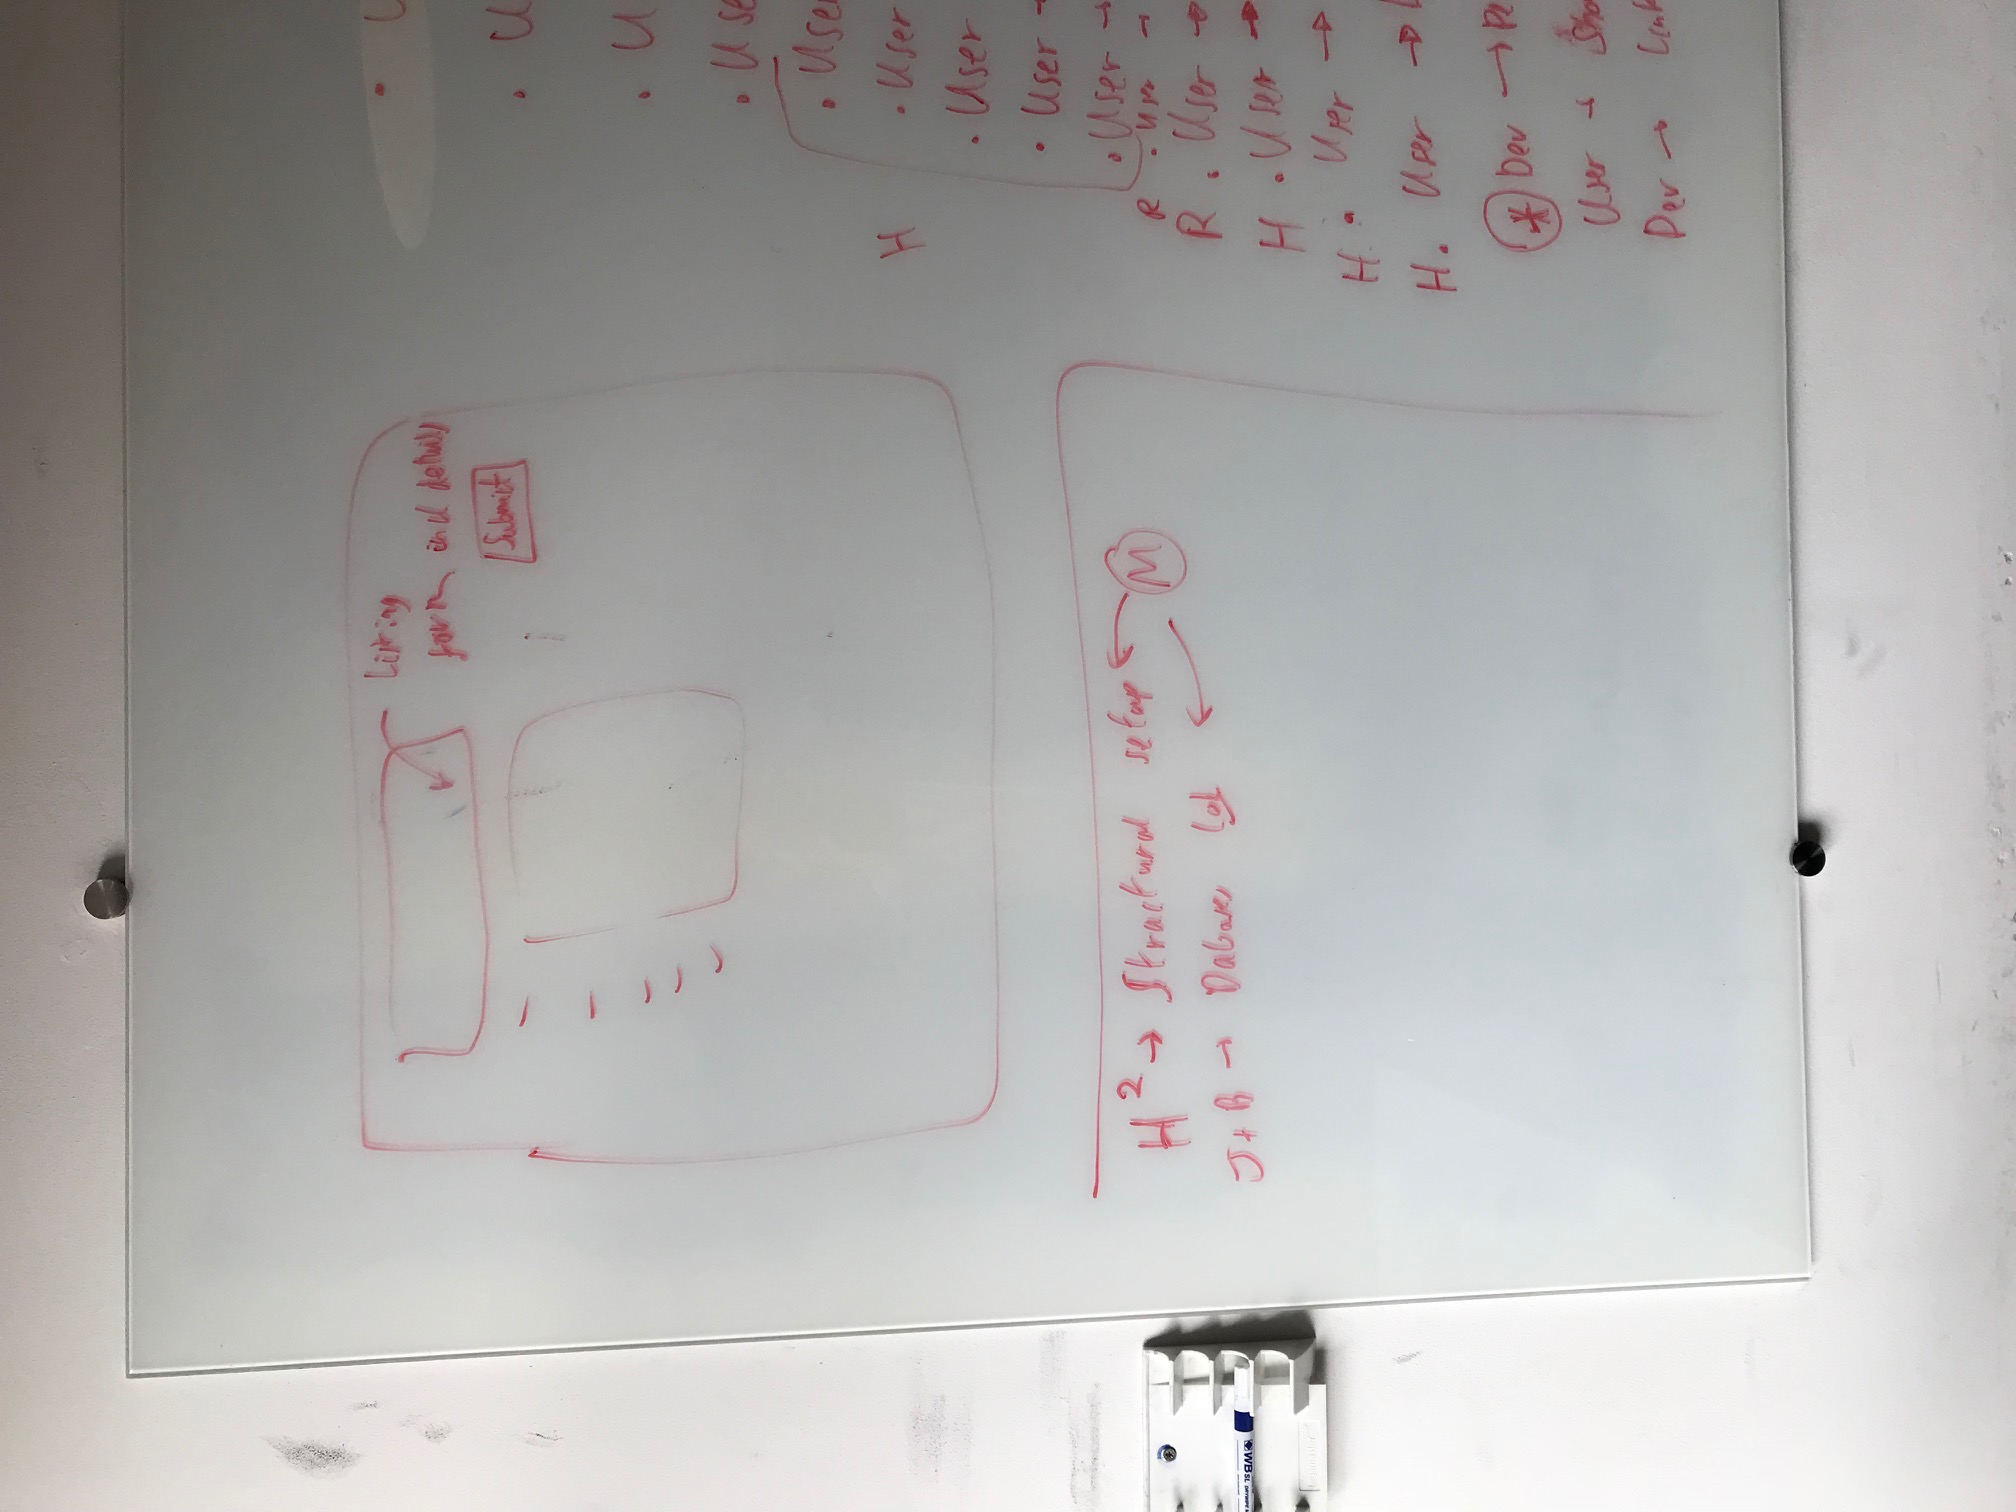 Listing
form and details
Submit
H² → Structural setup ← M
J + B → Databases
• U
• U
• U
• Use
• User
H • User
• User
• User →
• User →
R • User →
R • User →
H • User →
H • User →
H • User → L
* Dev → Pe
User → Sho
Dev → Link
WB SL